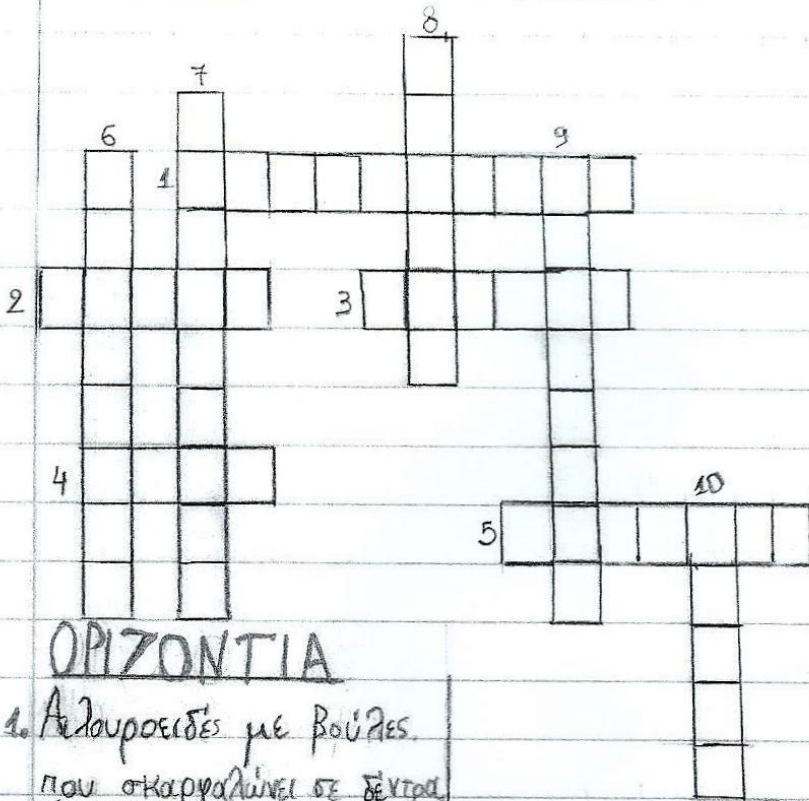 8
7
6
9
1
2
3
4
10
5
ΟΡΙΖΟΝΤΙΑ
1. Αιλουροειδές με βούλες
που σκαρφαλώνει σε δέντρα